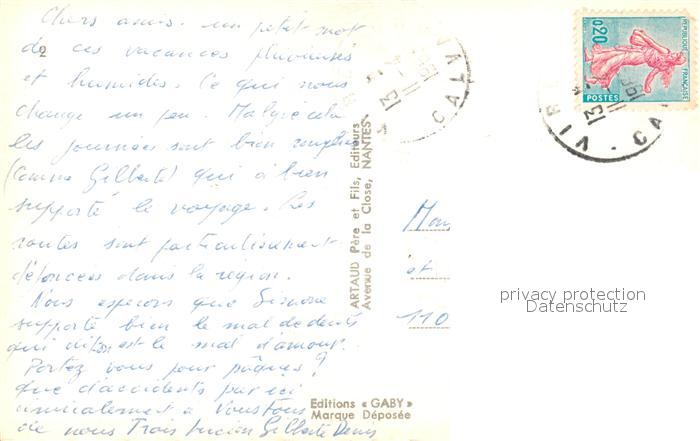 Chers amis. un petit mot
de ces vacances pluvieuses
et humides. Ce qui nous
change un peu. Malgré cela
les journées sont bien remplies
(comme Gilberte) qui a bien
supporté le voyage. Les
routes sont particulièrement
défoncées dans la région.
Nous espérons que Simone
supporte bien le mal de dents
qui dit on est le mal d'amour.
Partez vous pour pâques?
que d'accidents par ici
amicalement a Vous Tous
de nous Trois Lucien Gilberte Denis
2
ARTAUD Père et Fils, Editeurs
Avenue de la Close, NANTES
Editions « GABY »
Marque Déposée
0,20
REPUBLIQUE FRANÇAISE
POSTES
et
110
privacy protection
Datenschutz